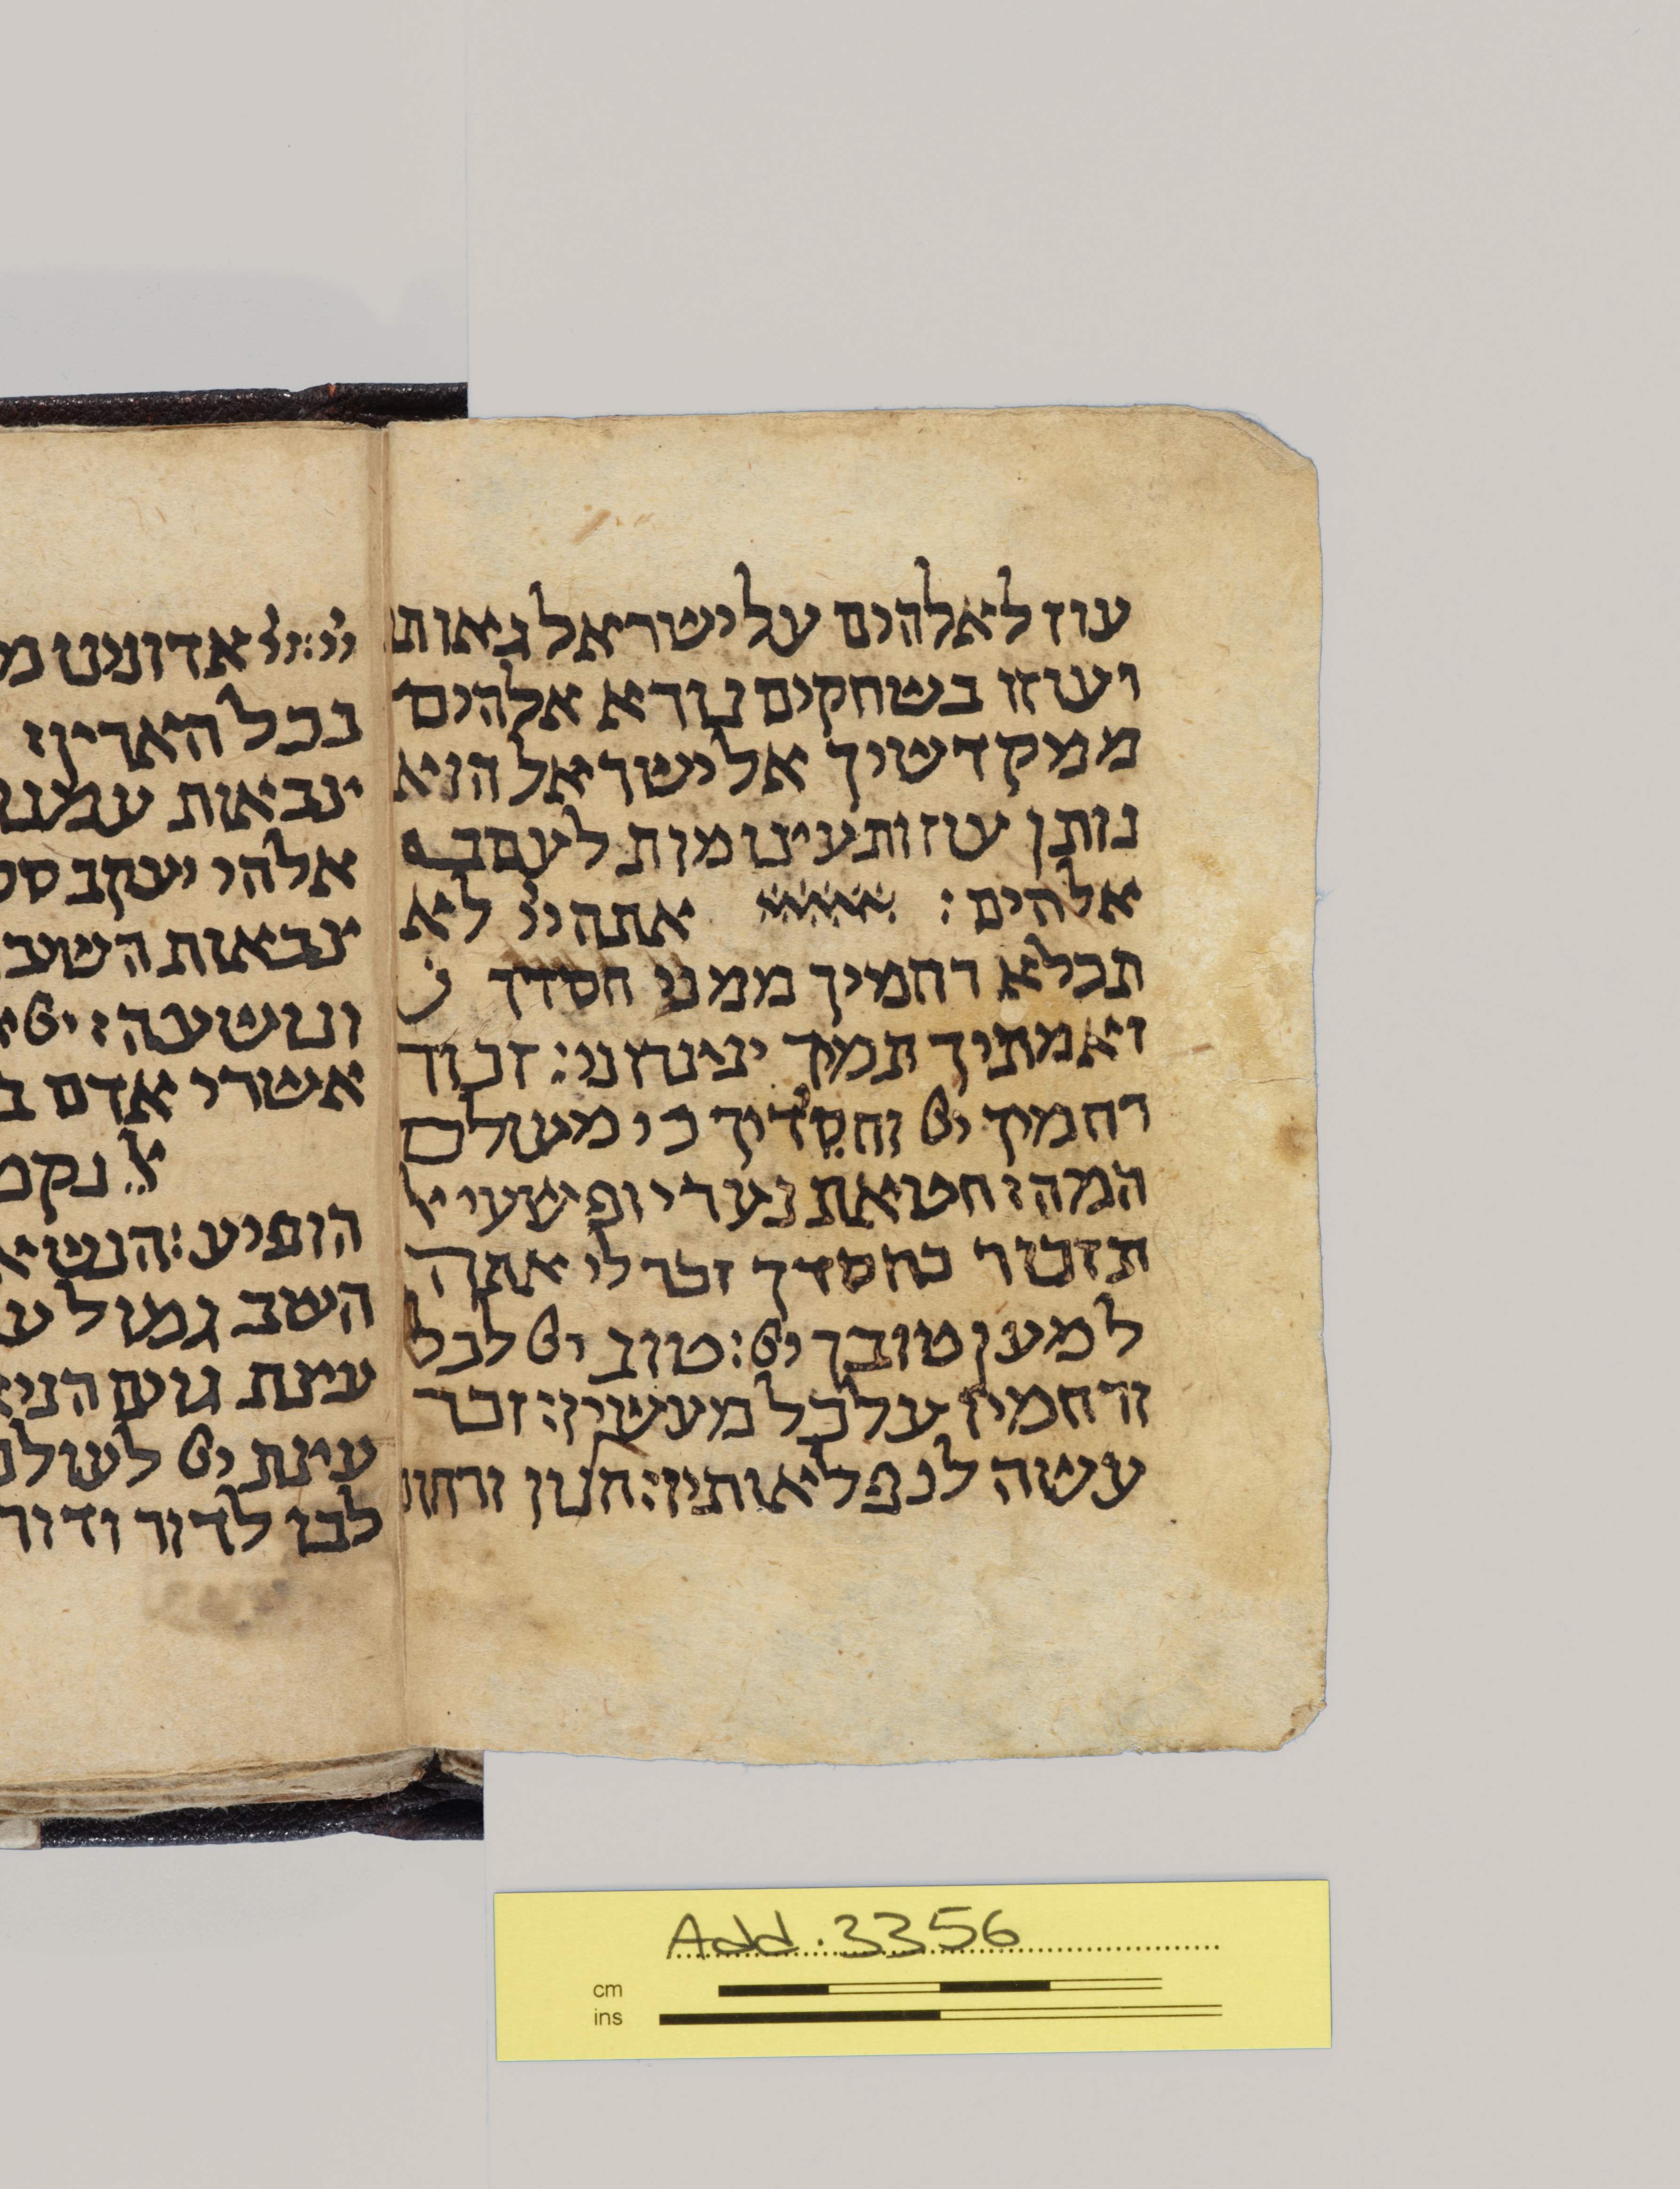 עוז לאלהים על ישראל גאותו
ועוזו בשחקים נורא אלהים
ממקדשיך אל ישראל הוא
נותן עוז ותעצומות לעם ב
אלהים: אתה ייי לא
תכלא רחמיך ממני חסדך
ואמתיך תמיד יצרוני: זכור
רחמיך יי וחסדיך כי מעולם
המה: חטאת נעורי ופשעי אל
תזכור כחסדך זכר לי אתה
למען טובך יי: טוב יי לכל
ורחמיו על כל מעשיו: זכר
עשה לנפלאותיו: חנון ורחו
ייי אדונינו
בכל הארץ:
צבאות עמנו
אלהי יעקב
צבאות השב
ונושעה: יי
אשרי אדם ב
אל נקמ
הופיע: הנשא
השב גמול ע
עצת גוים הני
עצת יי לעולם
לבו לדור ודור
Add. 3356
cm
ins